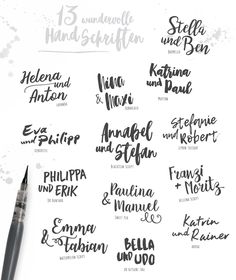 13 wundervolle
HandSchriften
Stella
und Ben
Helena
und
Anton
Nina
& Maxi
Katrina
und Paul
Eva
und Philipp
Annabel
und Stefan
Stefanie
und Robert
PHILIPPA
UND ERIK
Paulina
& Manuel
Franzi
+ Moritz
Emma
& Fabian
BELLA
UND UDO
Katrin
und Rainer